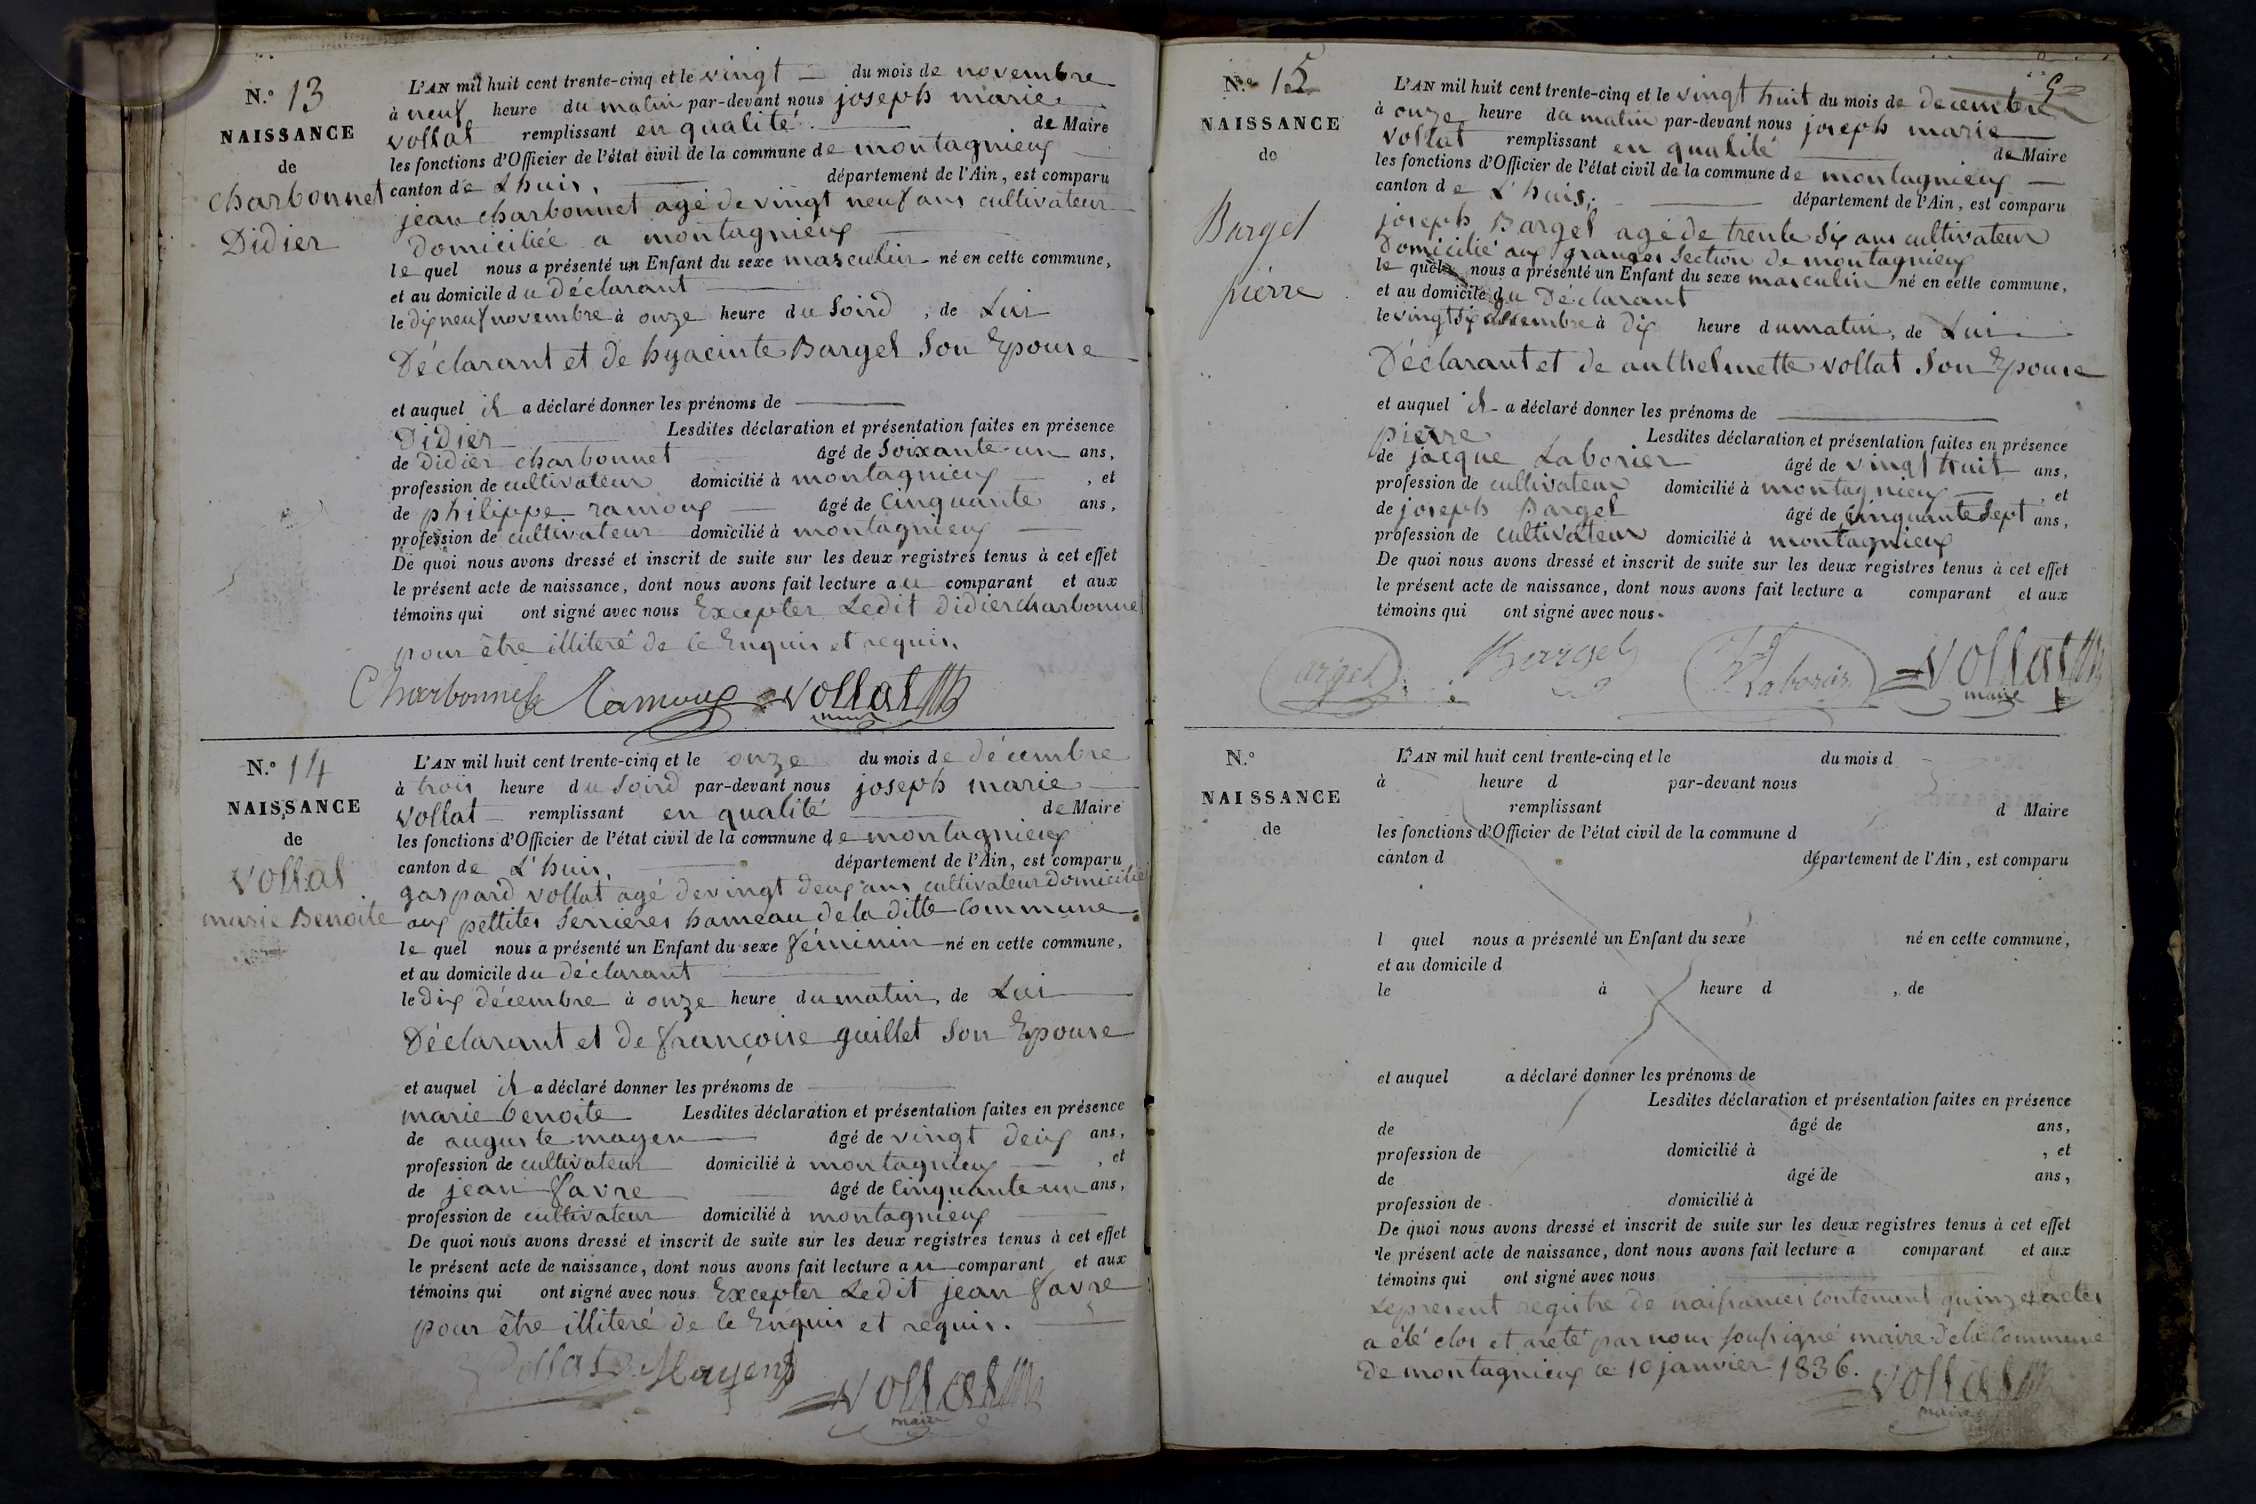 N.o 13
NAISSANCE
de
charbonnet
Didier
L'AN mil huit cent trente-cinq et le vingt du mois de novembre
à neuf heure du matin par-devant nous joseph marie
vollat remplissant en qualité de Maire
les fonctions d'Officier de l'état civil de la commune de montagnieux
canton de Lhuis, département de l'Ain, est comparu
jean charbonnet agé de vingt neuf ans cultivateur
domiciliée a montagnieux
le quel nous a présenté un Enfant du sexe masculin né en cette commune,
et au domicile du déclarant
le dix neuf novembre à onze heure du soird, de Lui
Déclarant et de hyacinte Bargel son Epouse
et auquel il a déclaré donner les prénoms de
Didier Lesdites déclaration et présentation faites en présence
de didier charbonnet âgé de soixante-un ans,
profession de cultivateur domicilié à montagnieux, et
de philippe ramoux âgé de cinquante ans,
profession de cultivateur domicilié à montagnieux
De quoi nous avons dressé et inscrit de suite sur les deux registres tenus à cet effet
le présent acte de naissance, dont nous avons fait lecture au comparant et aux
témoins qui ont signé avec nous Excepter Ledit didier charbonnet
pour être illiteré de ce Enquis et requis.
Charbonnet Ramoux vollat
maire
N.o 14
NAISSANCE
de
vollat
marie Benoite
L'AN mil huit cent trente-cinq et le onze du mois de décembre
à trois heure du soird par-devant nous joseph marie
vollat remplissant en qualité de Maire
les fonctions d'Officier de l'état civil de la commune de montagnieux
canton de L'huis, département de l'Ain, est comparu
gaspard vollat agé de vingt deux ans cultivateur domicilié
aux pettites serrieres hameau de la ditte commune
le quel nous a présenté un Enfant du sexe féminin né en cette commune,
et au domicile du déclarant
le dix décembre à onze heure du matin, de Lui
Déclarant et de françoise guillet son Epouse
et auquel il a déclaré donner les prénoms de
marie benoite Lesdites déclaration et présentation faites en présence
de auguste mayen âgé de vingt deux ans,
profession de cultivateur domicilié à montagnieux, et
de jean favre âgé de cinquante-un ans,
profession de cultivateur domicilié à montagnieux
De quoi nous avons dressé et inscrit de suite sur les deux registres tenus à cet effet
le présent acte de naissance, dont nous avons fait lecture au comparant et aux
témoins qui ont signé avec nous Excepter Ledit jean favre
pour être illiteré de ce Enquis et requis.
Vollat Mayen vollat
maire
N.o 15
NAISSANCE
de
Bargel
pierre
L'AN mil huit cent trente-cinq et le vingt huit du mois de decembre
à onze heure du matin par-devant nous joseph marie
vollat remplissant en qualité de Maire
les fonctions d'Officier de l'état civil de la commune de montagnieux
canton de L'huis, département de l'Ain, est comparu
joseph Bargel agé de trente six ans cultivateur
domicilié aux granges section de montagnieux
le quel nous a présenté un Enfant du sexe masculin né en cette commune,
et au domicile du Déclarant
le vingt six décembre à dix heure du matin, de Lui
Déclarant et de anthelmette vollat son Epouse
et auquel il a déclaré donner les prénoms de
pierre Lesdites déclaration et présentation faites en présence
de jacque Laborier âgé de vingt huit ans,
profession de cultivateur domicilié à montagnieux, et
de joseph Bargel âgé de cinquante sept ans,
profession de cultivateur domicilié à montagnieux
De quoi nous avons dressé et inscrit de suite sur les deux registres tenus à cet effet
le présent acte de naissance, dont nous avons fait lecture a comparant et aux
témoins qui ont signé avec nous.
argel Bargel Laborier vollat
maire
N.o
NAISSANCE
de
L'AN mil huit cent trente-cinq et le du mois d
à heure d par-devant nous
remplissant d Maire
les fonctions d'Officier de l'état civil de la commune d
canton d département de l'Ain, est comparu
l quel nous a présenté un Enfant du sexe né en cette commune,
et au domicile d
le à heure d , de
et auquel a déclaré donner les prénoms de
Lesdites déclaration et présentation faites en présence
de âgé de ans,
profession de domicilié à , et
de âgé de ans,
profession de domicilié à
De quoi nous avons dressé et inscrit de suite sur les deux registres tenus à cet effet
le présent acte de naissance, dont nous avons fait lecture a comparant et aux
témoins qui ont signé avec nous
Le present registre de naissances contenant quinze actes
a été clos et areté par nous soussigné maire de la commune
de montagnieux ce 10 janvier 1836. vollat
maire